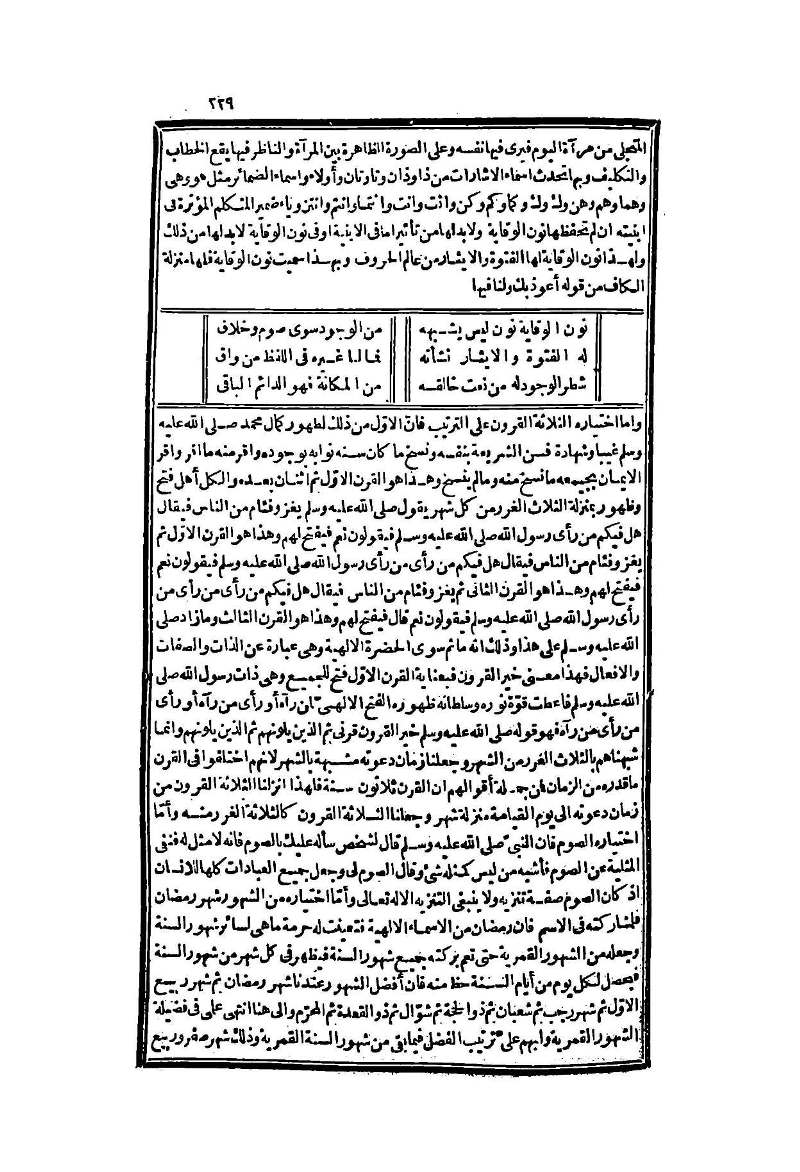 ٢٢٩
المتجلى من مرآة اليوم فيرى فيها نفسه وعلى الصورة الظاهرة بين المرآة والناظر فيها يقع الخطاب
والتكليف وبها تحدث اسماء الاشارات من ذا وذان وتا وتان وأولاء واسماء الضمائر مثل هو وهى
وهما وهم وهن ولك ولك وكما وكم وكن وانت وانت وانتما وانتم وانتن وياء ضمير المتكلم المؤثرة فى
ابنيته ان لم تحفظها نون الوقاية ولابد لها من تأثير اما فى الابنية اوفى نون الوقاية لابد لها من ذلك
ولهذا نون الوقاية لها الفتوة والايثار من عالم الحروف وبهذا سميت نون الوقاية فلها منزلة
الكاف من قوله أعوذ بك ولنا فيها
نون الوقاية نون ليس يشبهه من الوجود سوى صوم وخلاق
له الفتوة والايثار نشأته فما لها غيره فى اللفظ من واق
شطر الوجود له من نعت خالقه من المكانة فهو الدائم الباقى
واما اختياره الثلاثة القرون على الترتيب فان الاول من ذلك لظهور كمال محمد صلى الله عليه
وسلم غيبا وشهادة فسن الشريعة بنفسه ونسخ ما كان سنه نوابه بوجوده واقر منه ما اقر واقر
الايمان بجميعه ما نسخ منه وما لم ينسخ وهذا هو القرن الاول ثم اثنان بعده والكل أهل فتح
وظهور بمنزلة الثلاث الغرر من كل شهر يقول صلى الله عليه وسلم يغزو فئام من الناس فيقال
هل فيكم من رأى رسول الله صلى الله عليه وسلم فيقولون نعم فيفتح لهم وهذا هو القرن الاول ثم
يغزو فئام من الناس فيقال هل فيكم من رأى من رأى رسول الله صلى الله عليه وسلم فيقولون نعم
فيفتح لهم وهذا هو القرن الثانى ثم يغزو فئام من الناس فيقال هل فيكم من رأى من رأى من
رأى رسول الله صلى الله عليه وسلم فيقولون نعم قال فيفتح لهم وهذا هو القرن الثالث وما زاد صلى
الله عليه وسلم على هذا وذلك انه ما ثم سوى الحضرة الالهية وهى عبارة عن الذات والصفات
والافعال فهذا معنى خير القرون فبعناية القرن الاول فتح للجميع وهى ذات رسول الله صلى
الله عليه وسلم فاعطت قوة نوره وسلطانه ظهور هذا الفتح الالهى لمن رآه أو رأى من رآه أو رأى
من رأى من رآه فهو قوله صلى الله عليه وسلم خير القرون قرنى ثم الذين يلونهم ثم الذين يلونهم وانما
شبهناهم بالثلاث الغرر من الشهر وجعلنا زمان دعوته مشبهة بالشهر لانهم اختلفوا فى القرن
ما قدره من الزمان فمن جملة أقوالهم ان القرن ثلاثون سنة فلهذا انزلنا الثلاثة القرون من
زمان دعوته الى يوم القيامة منزلة شهر وجعلنا الثلاثة القرون كالثلاثة الغرر منه وأما
اختياره الصوم فان النبى صلى الله عليه وسلم قال لشخص سأله عليك بالصوم فانه لا مثل له فنفى
المثلية عن الصوم فأشبه من ليس كمثله شئ وقال الصوم لى وجعل جميع العبادات كلها للانسان
اذ كان الصوم صفة تنزيه ولا ينبغى التنزيه الا له تعالى وأما اختياره من الشهور شهر رمضان
فلمشاركته فى الاسم فان رمضان من الاسماء الالهية فتعينت له حرمة ما هى لسائر شهور السنة
وجعله من الشهور القمرية حتى تعم بركته جميع شهور السنة فيظهر فى كل شهر من شهور السنة
فيحصل لكل يوم من أيام السنة حظ منه فان أفضل الشهور عندنا شهر رمضان ثم شهر ربيع
الاول ثم شهر رجب ثم شعبان ثم ذو الحجة ثم شوال ثم ذو القعدة ثم المحرم والى هنا انتهى على فى فضيلة
الشهور القمرية وابهم على ترتيب الفضل فيما بقى من شهور السنة القمرية وذلك شهر صفر وربيع